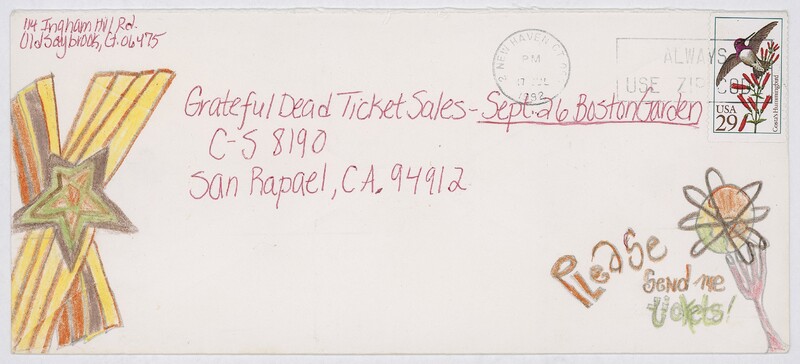 114 Ingham Hill Rd.
Old Saybrook, Ct. 06475
NEW HAVEN CT
PM
1992
ALWAYS
USE ZIP CODE
Costa's Hummingbird
USA
29
Grateful Dead Ticket Sales - Sept. 26 Boston Garden
C-S 8190
San Rapael, CA. 94912
Please
send me
tickets!